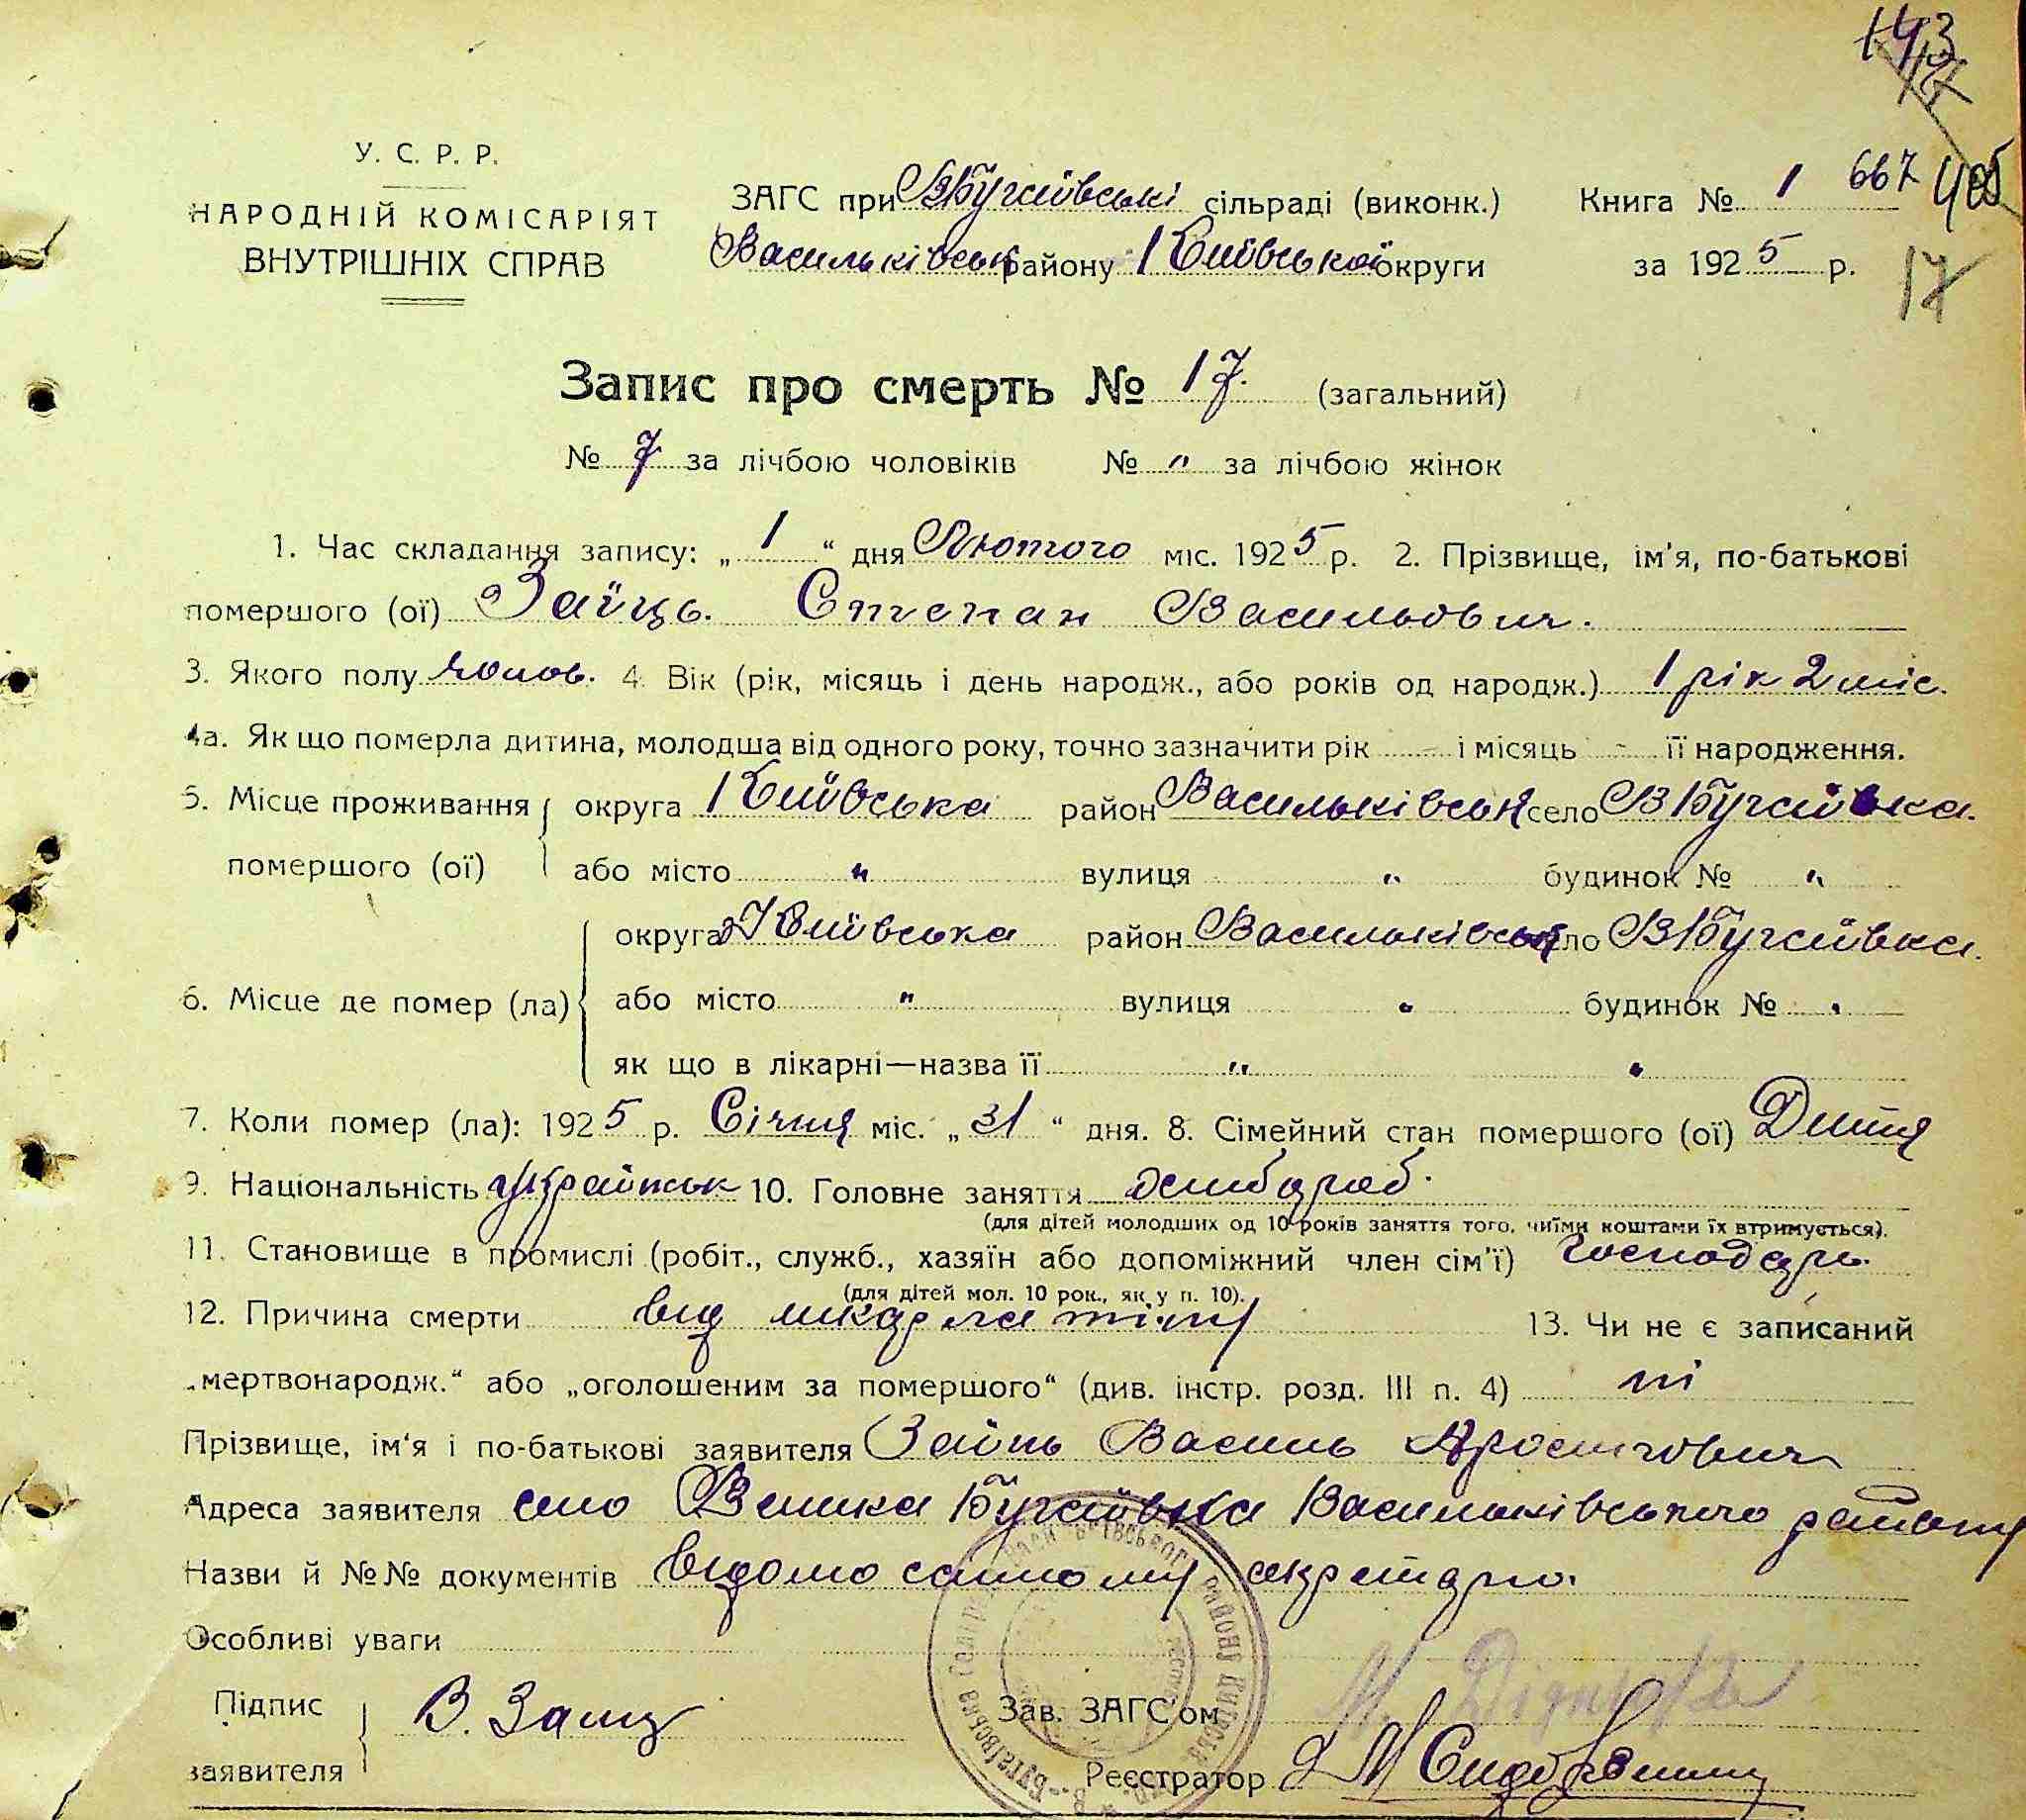 143
У. С. Р. Р.
НАРОДНІЙ КОМІСАРІЯТ
ВНУТРІШНІХ СПРАВ
ЗАГС при ВБугаївські сільраді (виконк.)
Васильківськ району Київської округи
Книга № 1 667
за 1925 р.
17
Запис про смерть № 17. (загальний)
№ 7 за лічбою чоловіків № " за лічбою жінок
1. Час складання запису: „ 1 “ дня Лютого міс. 1925 р. 2. Прізвище, ім'я, по-батькові
помершого (ої) Заїць. Степан Васильович.
3. Якого полу чолов. 4. Вік (рік, місяць і день народж., або років од народж.) 1 рік 2 міс.
4а. Як що померла дитина, молодша від одного року, точно зазначити рік - і місяць - її народження.
5. Місце проживання помершого (ої)
округа Київська район Васильківськ село ВБугаївка.
або місто " вулиця " будинок № "
6. Місце де помер (ла)
округа Київська район Васильківськ село ВБугаївка.
або місто " вулиця " будинок № "
як що в лікарні—назва її " "
7. Коли помер (ла): 1925 р. Січня міс. „ 31 “ дня. 8. Сімейний стан помершого (ої) Дитя
9. Національність українськ 10. Головне заняття хлібороб.
(для дітей молодших од 10 років заняття того, чиїми коштами їх втримується).
11. Становище в промислі (робіт., служб., хазяїн або допоміжний член сім'ї) господарь.
(для дітей мол. 10 рок., як у п. 10).
12. Причина смерти від 13. Чи не є записаний
„мертвонародж.“ або „оголошеним за помершого“ (див. інстр. розд. III п. 4) ні
Прізвище, ім'я і по-батькові заявителя Заїць Василь
Адреса заявителя село Велика Бугаївка Васильківського району
Назви й №№ документів відомо самому секретарю.
Особливі уваги
Підпис заявителя В. Заяц
Зав. ЗАГС'ом
Реєстратор